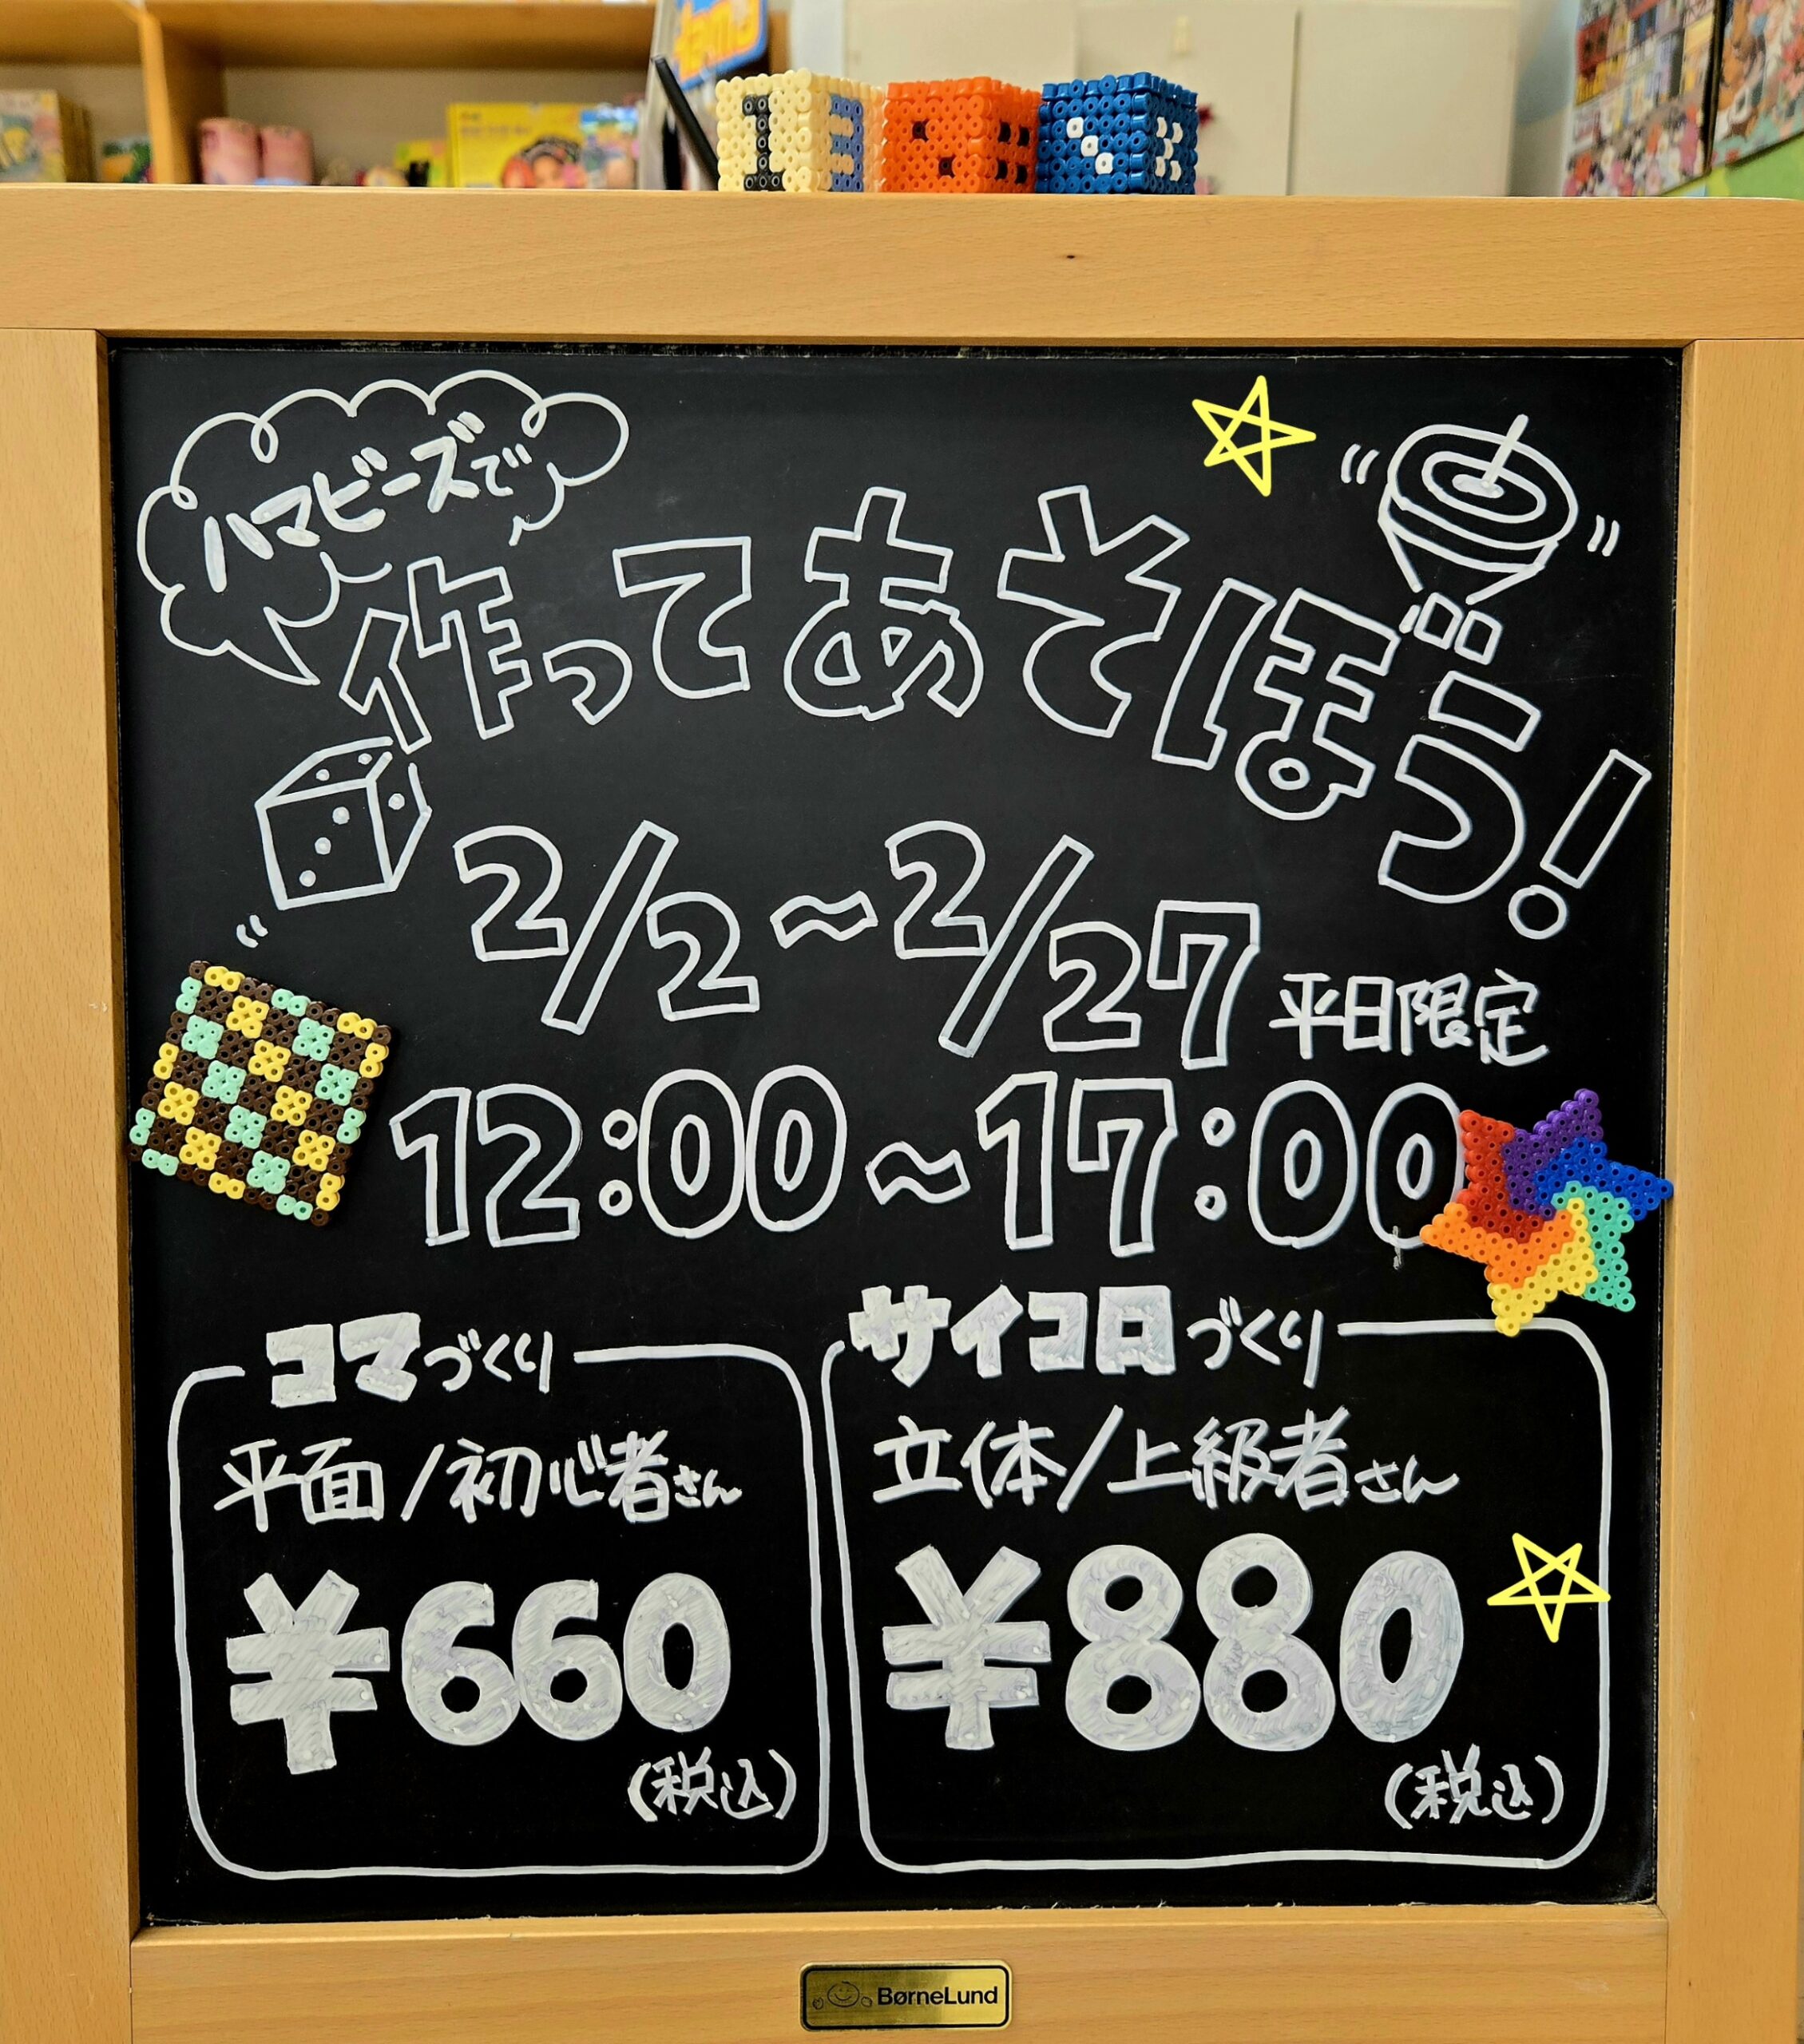 ハマビーズで
作ってあそぼう!
2/2~2/27 平日限定
12:00~17:00
コマづくり
平面/初心者さん
¥660
(税込)
サイコロづくり
立体/上級者さん
¥880
(税込)
BørneLund